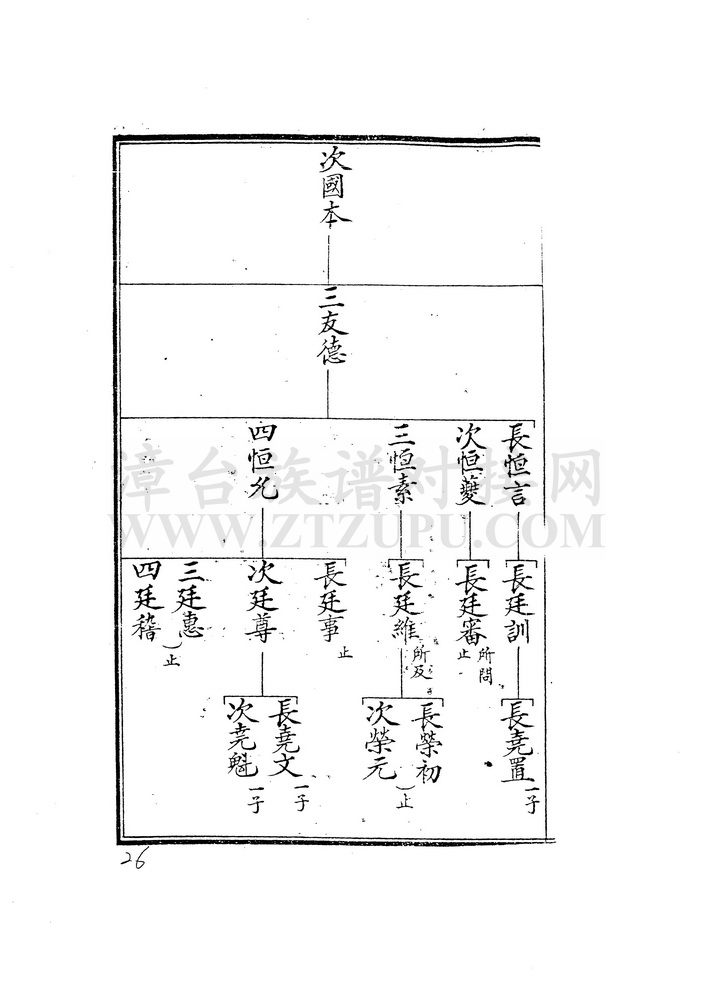 次國本
三友德
長恒言
次恒夔
三恒素
四恒允
長廷訓
長廷審
所問
止
長廷維
所及
子
長廷事
止
次廷尊
三廷惠
止
四廷稽
長堯置
一子
長榮初
次榮元
止
長堯文
一子
次堯魁
一子
26
漳台族谱对接网
WWW.ZTZUPU.COM